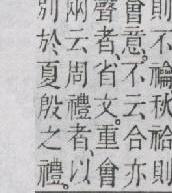 則不禴秋祫則
會意。不云合亦
聲者、省文。重會
兩云周禮者、以
別於夏殷之禮。